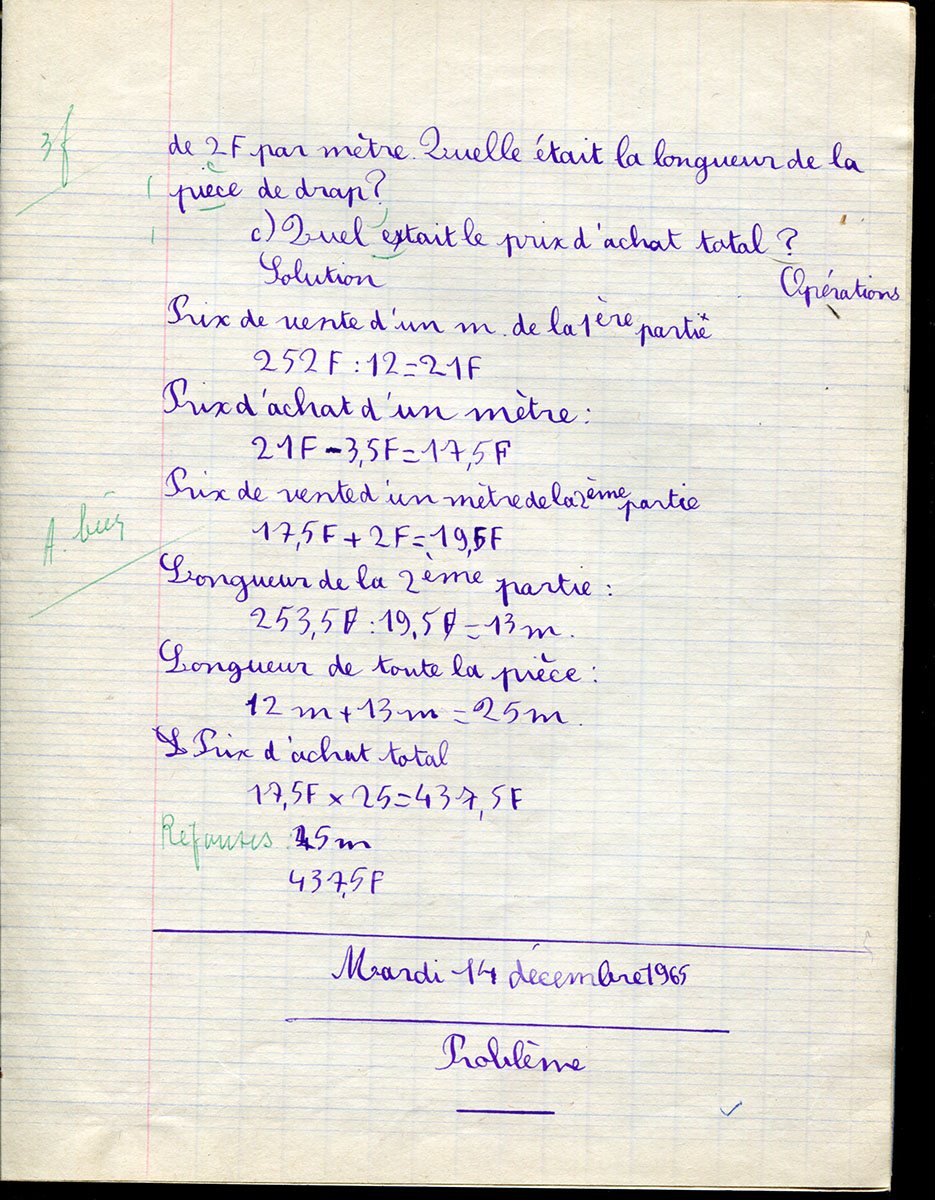 3f
de 2F par mètre. Quelle était la longueur de la
pièce de drap?
c) Quel était le prix d'achat total ?
Solution
Opérations
Prix de vente d'un m. de la 1ère partie
252F : 12 = 21F
Prix d'achat d'un mètre :
21F - 3,5F = 17,5F
Prix de vente d'un mètre de la 2ème partie
A. bien
17,5F + 2F = 19,5F
Longueur de la 2ème partie :
253,5F : 19,5F = 13m.
Longueur de toute la pièce :
12m + 13m = 25m.
Prix d'achat total
17,5F x 25 = 437,5F
Réponses : 25m
437,5F
Mardi 14 décembre 1965
Problème